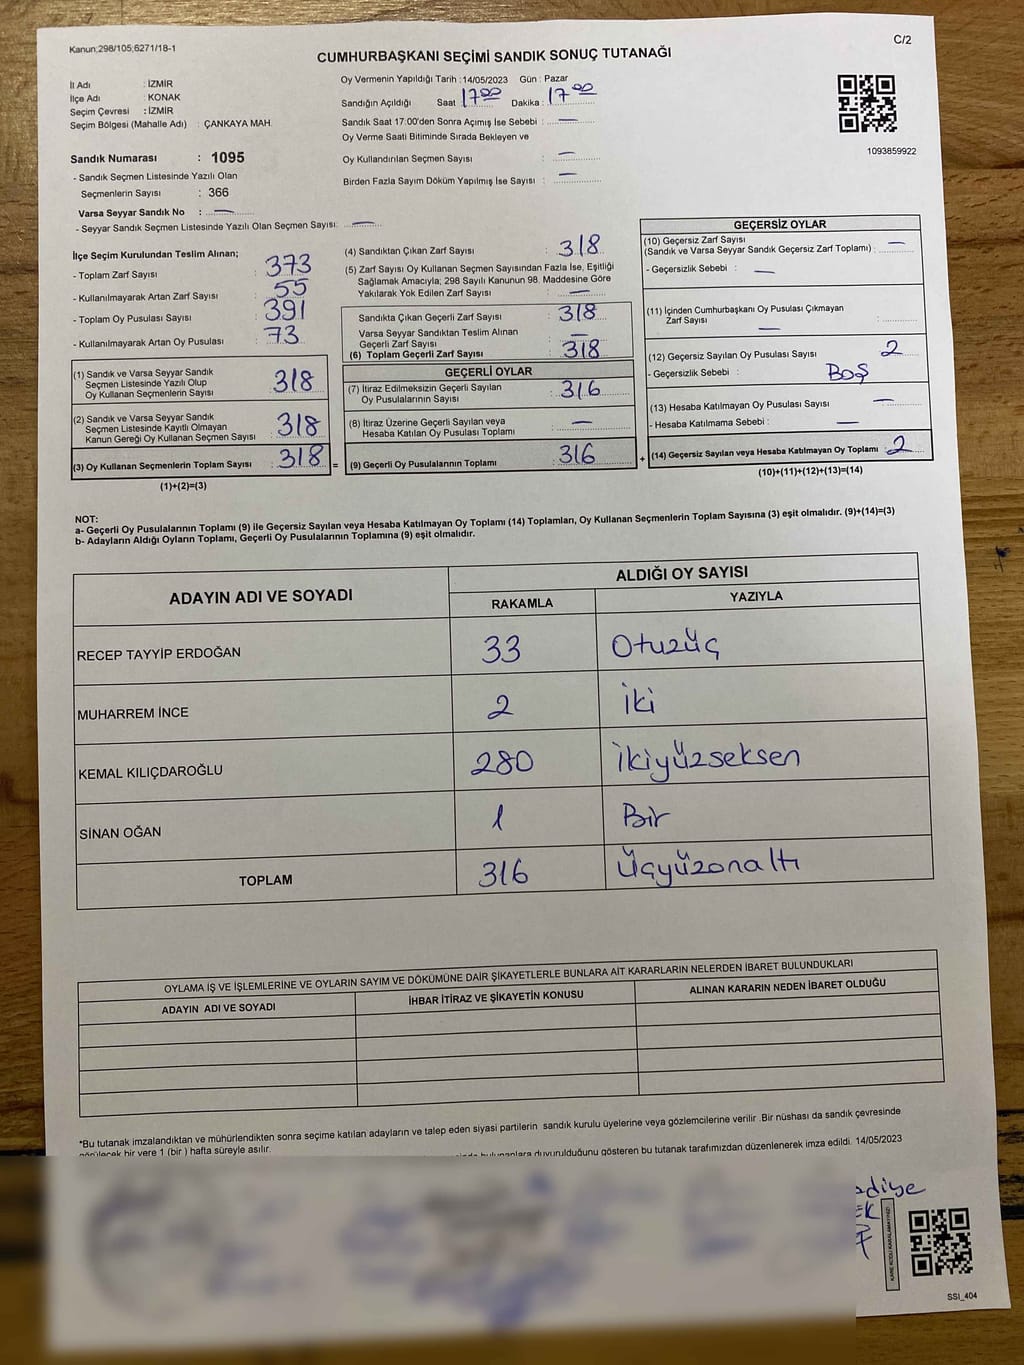 Kanun;298/105;6271/18-1
C/2
CUMHURBAŞKANI SEÇİMİ SANDIK SONUÇ TUTANAĞI
İl Adı : İZMİR
İlçe Adı : KONAK
Seçim Çevresi : İZMİR
Seçim Bölgesi (Mahalle Adı) : ÇANKAYA MAH.
Oy Vermenin Yapıldığı Tarih :14/05/2023 Gün : Pazar
Sandığın Açıldığı Saat 17:00 Dakika : 17:00
Sandık Saat 17:00'den Sonra Açımış İse Sebebi : —
Oy Verme Saati Bitiminde Sırada Bekleyen ve
Oy Kullandırılan Seçmen Sayısı : —
Birden Fazla Sayım Döküm Yapılmış İse Sayısı : —
1093859922
Sandık Numarası : 1095
- Sandık Seçmen Listesinde Yazılı Olan
Seçmenlerin Sayısı : 366
Varsa Seyyar Sandık No : —
- Seyyar Sandık Seçmen Listesinde Yazılı Olan Seçmen Sayısı: —
İlçe Seçim Kurulundan Teslim Alınan;
- Toplam Zarf Sayısı : 373
- Kullanılmayarak Artan Zarf Sayısı : 55
- Toplam Oy Pusulası Sayısı : 391
- Kullanılmayarak Artan Oy Pusulası : 73
(1) Sandık ve Varsa Seyyar Sandık
Seçmen Listesinde Yazılı Olup
Oy Kullanan Seçmenlerin Sayısı : 318
(2) Sandık ve Varsa Seyyar Sandık
Seçmen Listesinde Kayıtlı Olmayan
Kanun Gereği Oy Kullanan Seçmen Sayısı : 318
(3) Oy Kullanan Seçmenlerin Toplam Sayısı : 318
(1)+(2)=(3)
(4) Sandıktan Çıkan Zarf Sayısı : 318
(5) Zarf Sayısı Oy Kullanan Seçmen Sayısından Fazla İse, Eşitliği
Sağlamak Amacıyla; 298 Sayılı Kanunun 98. Maddesine Göre
Yakılarak Yok Edilen Zarf Sayısı : —
Sandıkta Çıkan Geçerli Zarf Sayısı : 318
Varsa Seyyar Sandıktan Teslim Alınan
Geçerli Zarf Sayısı : —
(6) Toplam Geçerli Zarf Sayısı : 318
GEÇERLİ OYLAR
(7) İtiraz Edilmeksizin Geçerli Sayılan
Oy Pusulalarının Sayısı : 316
(8) İtiraz Üzerine Geçerli Sayılan veya
Hesaba Katılan Oy Pusulası Toplamı : —
= (9) Geçerli Oy Pusulalarının Toplamı : 316 +
GEÇERSİZ OYLAR
(10) Geçersiz Zarf Sayısı
(Sandık ve Varsa Seyyar Sandık Geçersiz Zarf Toplamı) : —
- Geçersizlik Sebebi : —
(11) İçinden Cumhurbaşkanı Oy Pusulası Çıkmayan
Zarf Sayısı : —
(12) Geçersiz Sayılan Oy Pusulası Sayısı : 2
- Geçersizlik Sebebi : Boş
(13) Hesaba Katılmayan Oy Pusulası Sayısı : —
- Hesaba Katılmama Sebebi : —
(14) Geçersiz Sayılan veya Hesaba Katılmayan Oy Toplamı : 2
(10)+(11)+(12)+(13)=(14)
NOT:
a- Geçerli Oy Pusulalarının Toplamı (9) ile Geçersiz Sayılan veya Hesaba Katılmayan Oy Toplamı (14) Toplamları, Oy Kullanan Seçmenlerin Toplam Sayısına (3) eşit olmalıdır. (9)+(14)=(3)
b- Adayların Aldığı Oyların Toplamı, Geçerli Oy Pusulalarının Toplamına (9) eşit olmalıdır.
ADAYIN ADI VE SOYADI ALDIĞI OY SAYISI
RAKAMLA YAZIYLA
RECEP TAYYİP ERDOĞAN 33 Otuzüç
MUHARREM İNCE 2 İki
KEMAL KILIÇDAROĞLU 280 İkiyüzseksen
SİNAN OĞAN 1 Bir
TOPLAM 316 Üçyüzonaltı
OYLAMA İŞ VE İŞLEMLERİNE VE OYLARIN SAYIM VE DÖKÜMÜNE DAİR ŞİKAYETLERLE BUNLARA AİT KARARLARIN NELERDEN İBARET BULUNDUKLARI
ADAYIN ADI VE SOYADI İHBAR İTİRAZ VE ŞİKAYETİN KONUSU ALINAN KARARIN NEDEN İBARET OLDUĞU
*Bu tutanak imzalandıktan ve mühürlendikten sonra seçime katılan adayların ve talep eden siyasi partilerin sandık kurulu üyelerine veya gözlemcilerine verilir .Bir nüshası da sandık çevresinde
görülecek bir yere 1 (bir ) hafta süreyle asılır. bulunanlara duyurulduğunu gösteren bu tutanak tarafımızdan düzenlenerek imza edildi. 14/05/2023
KARE KODU KARALAMAYINIZ!
SSI_404